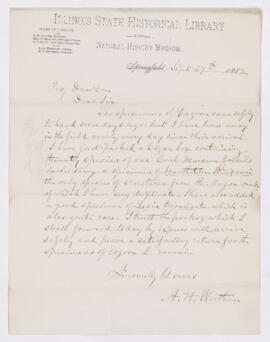 ILLINOIS STATE HISTORICAL LIBRARY
AND
NATURAL HISTORY MUSEUM.
Springfield, Sept 27th 1882
Prof Dawson
Dear Sir
The specimens of Eozoon came safely
to hand some days ago but I have been away
in the field nearly every day since their arrival.
I have just packed a cigar box containing
twenty species of our Coal Measure fossils
including a specimen of
the only species of crustacea from the
of which I have any duplicates. I have also added
a good specimen of which is
also quite rare. I trust the package which I
shall forward today by Express will arrive
safely and prove a satisfactory return for the
specimens of Eozoon I remain
Sincerely Yours
A. H. Worthen